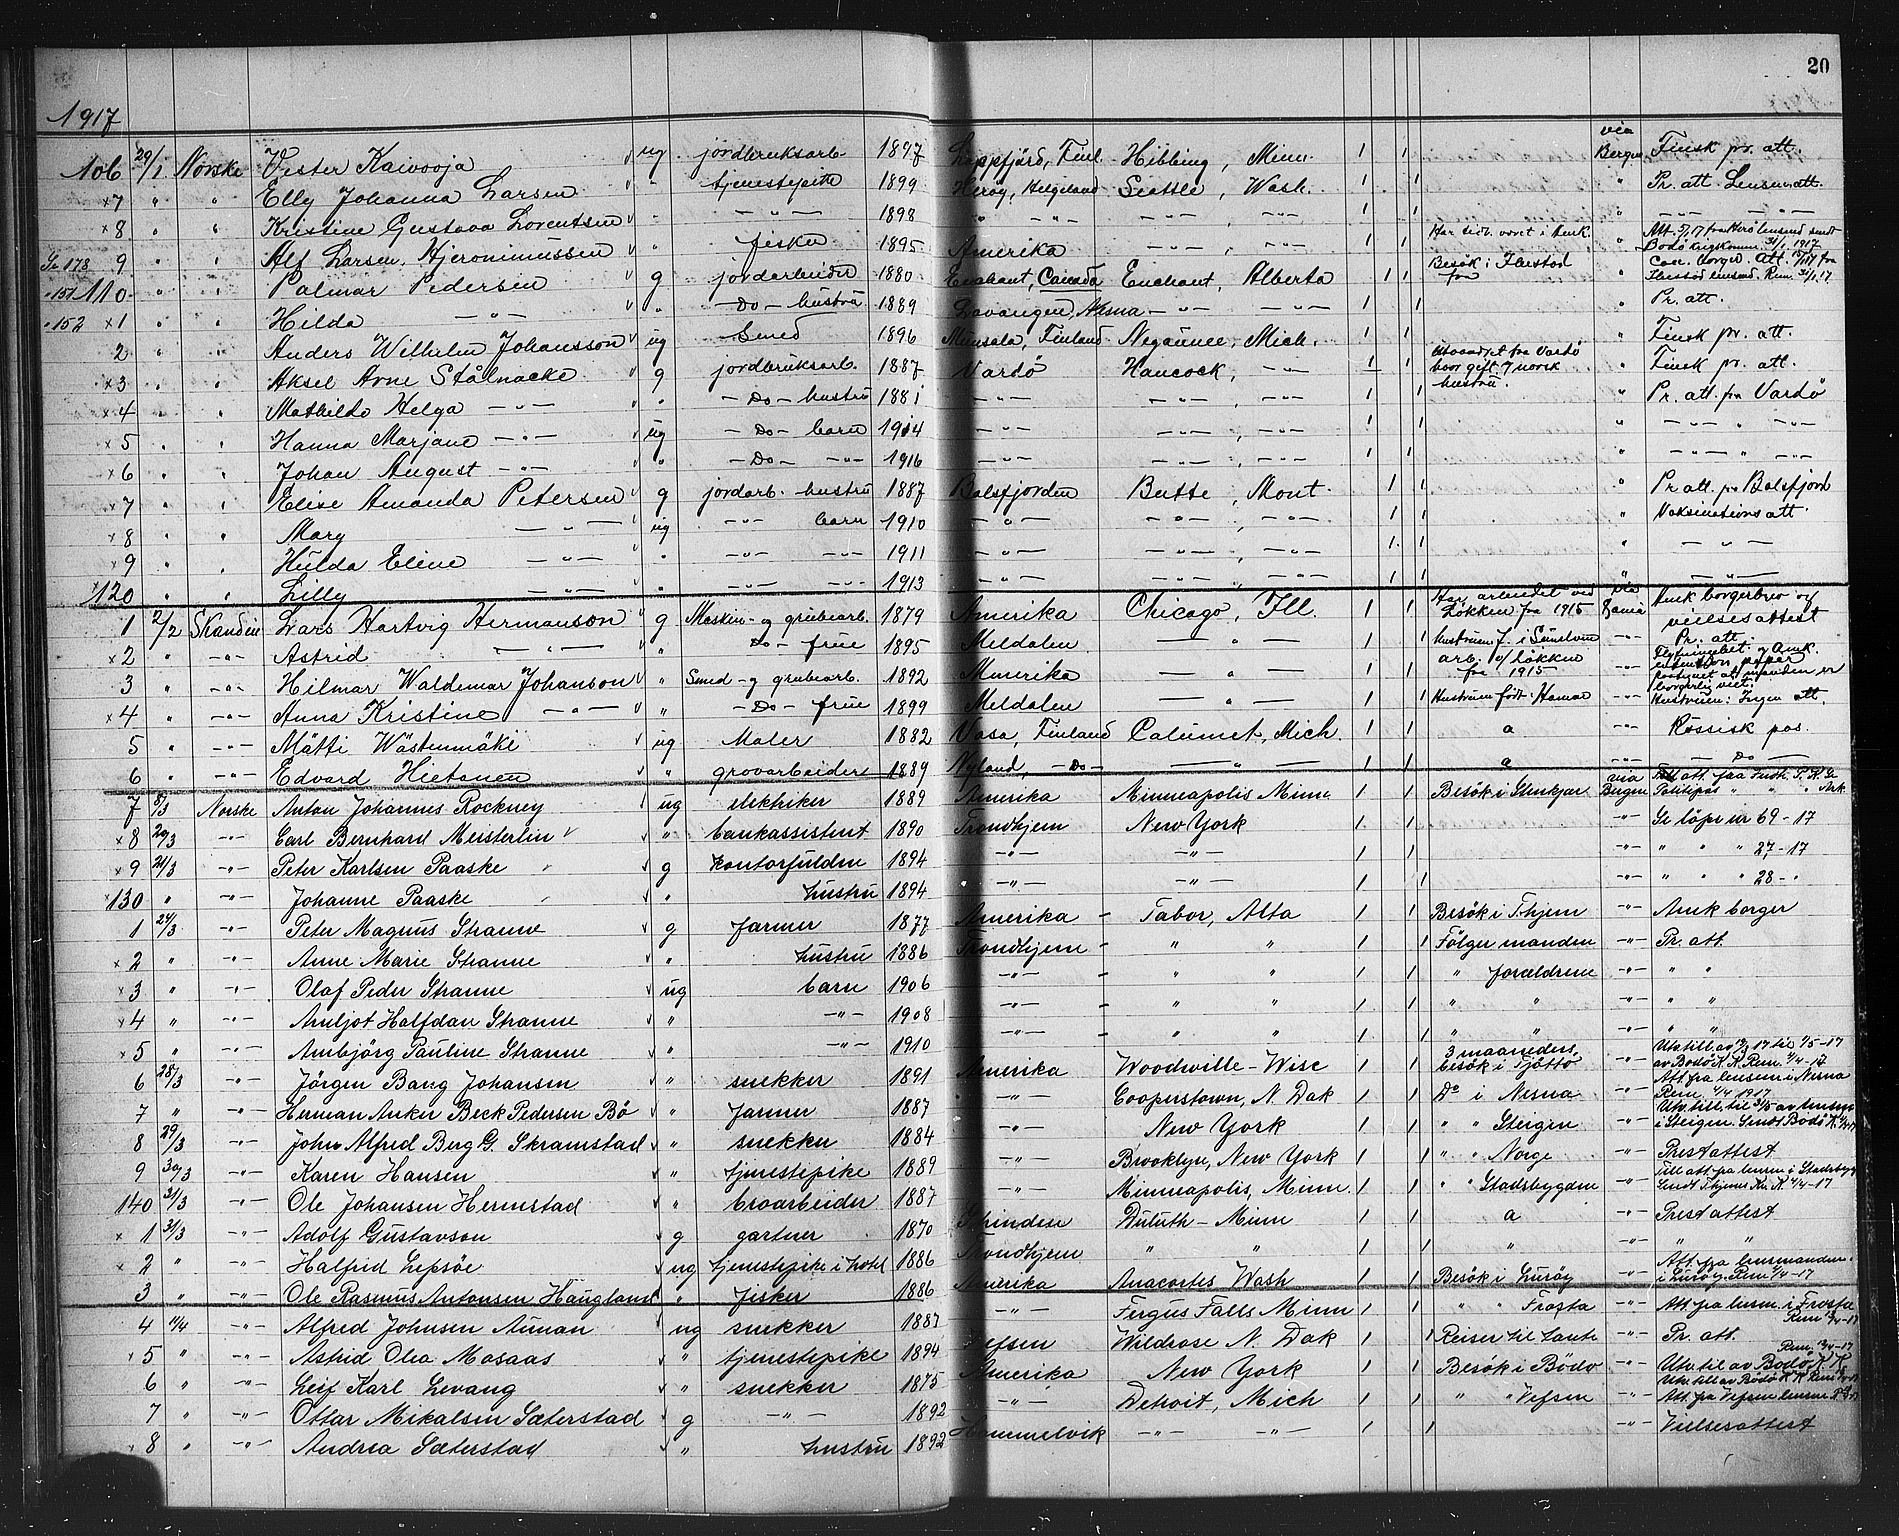 20
1917
106 29/1 Norske Vester Kaivooja ug jordbruksarb. 1897 Lappfjärd, Finl. Hibbing, Minn. 1 1 via Bergen Finsk pr. att.
x7 " " Elly Johanna Larsen " tjenestepike 1899 Herøy, Helgeland Seattle, Wash. 1 1 " Pr. att. Lensm. att.
x8 " " Kristine Gustava Lorentsen " — " — 1898 " — " — — " — , — " — 1 1 " — " — — " —
9 " " Alf Larsen Hjeronimussen " fisker 1895 Amerika — " — , — " — 1 1 "
110 " " Palmar Pedersen g jordarbeider 1880 Enchant, Canada Enchant, Alberta 1 1 Besøk i Ibestad "
152 x1 " " Hilda — " — " — Do — hustru 1889 Lavangen, — " — — " — 1 1 " Pr. att.
2 " " Anders Wilhelm Johansson ug Smed 1896 Munsala, Finland Negaunee, Mich. 1 1 " Finsk pr. att.
x3 " " Aksel Arne Stålnacke g jordbruksarb. 1887 Vardö Hancock, — " — 1 1 Utvandret fra Vardö hvor gift. 7 norsk hustru. " Finsk pr. att.
x4 " " Mathilde Helga — " — " — Do — hustru 1881 — " — — " — , — " — 1 1 " Pr. att. fra Vardö
x5 " " Hanna Marjane — " — ug — Do — barn 1914 — " — — " — , — " — 1 1 " — " — " — " —
x6 " " Johan August — " — " — Do — — " — 1916 — " — — " — , — " — 1 1 " — " — " — " —
x7 " " Elise Amanda Petersen g jordarb. hustru 1887 Balsfjorden Butte, Mont. 1 1 " Pr. att. fra Balsfjord
x8 " " Mary — " — ug — " — barn 1910 — " — — " — , — " — 1 1 " Vaksinations att.
x9 " " Hulda Eline — " — " — " — — " — 1911 — " — — " — , — " — 1 1 " — " —
x120 " " Lilly — " — " — " — — " — 1913 — " — — " — , — " — 1 1 " — " —
1 2/2 Skandin Lars Hartvig Hermanson g Maskin- og grubearb. 1879 Amerika Chicago, Ill. 1 1 Har arbeidet ved Løkken fra 1915 via Amk borgerbrev og vielsesattest
x2 " — " — Astrid — " — " Do — frue 1895 Meldalen — " — 1 1 — " — Pr. att.
3 " — " — Hilmar Waldemar Johanson " Smed- og grubearb. 1892 Amerika — " — 1 1 arb. v/ Løkken fra 1915 — " —
x4 " — " — Anna Kristine — " — " — Do — frue 1899 Meldalen — " — 1 1 Hustruen født: Hamar — " — Hustruen: Ingen att.
5 " — " — Mätti Wästenmäki ug Maler 1882 Vasa, Finland Calumet, Mich. 1 1 a — " — Russisk pas.
6 " — " — Edvard Hietanen " grovarbeider 1889 Nyland, — Do — — " — 1 1 a — " — — Do —
7 5/3 Norske Anton Johannes Rockney ug elektriker 1889 Amerika Minneapolis Minn 1 1 Besøk i Stenkjær via Bergen
x8 20/3 — " — Carl Bernhard Meisterlin " bankassistent 1890 Trondhjem New York 1 1 — " — Se løpe nr 69-17
x9 21/3 — " — Peter Karlsen Paaske g kontorfuldm 1894 — " — — " — 1 1 — " — " " " 27-17
x130 " — " — Johanne Paaske " hustru 1894 — " — — " — 1 1 — " — " " " 28- "
1 24/3 — " — Peter Magnus Stranne g farmer 1877 Amerika Tabor, Alta 1 1 Besøk i T.hjem — " — Amk borger
x2 " — " — Anne Marie Stranne " hustru 1886 Trondhjem " " 1 1 Følger manden — " — Pr. att.
x3 " — " — Olaf Peder Stranne ug barn 1906 — " — " " 1 1 " forældrene — " — " "
x4 " — " — Arnljot Halfdan Stranne " — " — 1908 — " — " " 1 1 " " — " — " "
x5 " — " — Arnbjörg Pauline Stranne " — " — 1910 — " — " " 1 1 " " — " — " "
6 28/3 — " — Jörgen Bang Johansen " snekker 1891 Amerika Woodwille - Wisc 1 1 3 maaneders besøk i Tjøtta — " — av Bodø K.K. Rem. 4/4-17
7 " — " — Herman Anker Beck Pedersen Bö " farmer 1887 — " — Cooperstown, N. Dak 1 1 Do i Nesna — " — Att. fra lensm. i Nesna Rem. 4/4 1917
8 29/3 — " — John Alfred Berg G. Skramstad " snekker 1884 — " — New York 1 1 " " Steigen — " —
9 30/3 — " — Karen Hansen " tjenestepike 1889 — " — Brooklyn, New York 1 1 " " Norge — " — Prestattest
140 31/3 — " — Ole Johansen Hermstad " broarbeider 1887 — " — Minneapolis, Minn. 1 1 " " Stadsbygden — " — Till. att. fra lensm. i Stadsbygd Sendt T.hjems Kr. K. 4/4-17
x1 31/3 — " — Adolf Gustavson g gartner 1870 Duluth - Minn 1 1 a — " — Prestattest
x2 " — " — Halfrid Lepsöe ug tjenestepike i hotel 1886 Trondhjem " " 1 1 " — " — " "
3 " — " — Ole Rasmus Antonsen Haugland " fisker 1886 Amerika Anacortes Wash 1 1 Besøk i Lurøy — " — Att. fra lensmanden i Lurøy. Rem 4/4-17
4 11/4 — " — Alfred Johnsen Auman ug snekker 1887 — " — Fergus Falls Minn 1 1 " " Frosta — " — Att. fra lensm. i Frosta
x5 " — " — Astrid Olea Mosaas " tjenestepike 1894 Vefsen Wildrose N. Dak 1 1 Reiser til tante — " — Pr. att.
6 " — " — Leif Karl Levang " snekker 1875 Amerika New York 1 1 Besøk i Bodö — " — Utv. til av Bodö K.K.
7 " — " — Ottar Mikalsen Sæterstad g — " — 1892 — " — Detroit, Mich 1 1 " " Vefsen — " — Att. fra Vefsen lensm.
x8 " — " — Andrea Sæterstad " hustru 1892 Hommelvik — " — — " — 1 1 — " — Vielsesattest